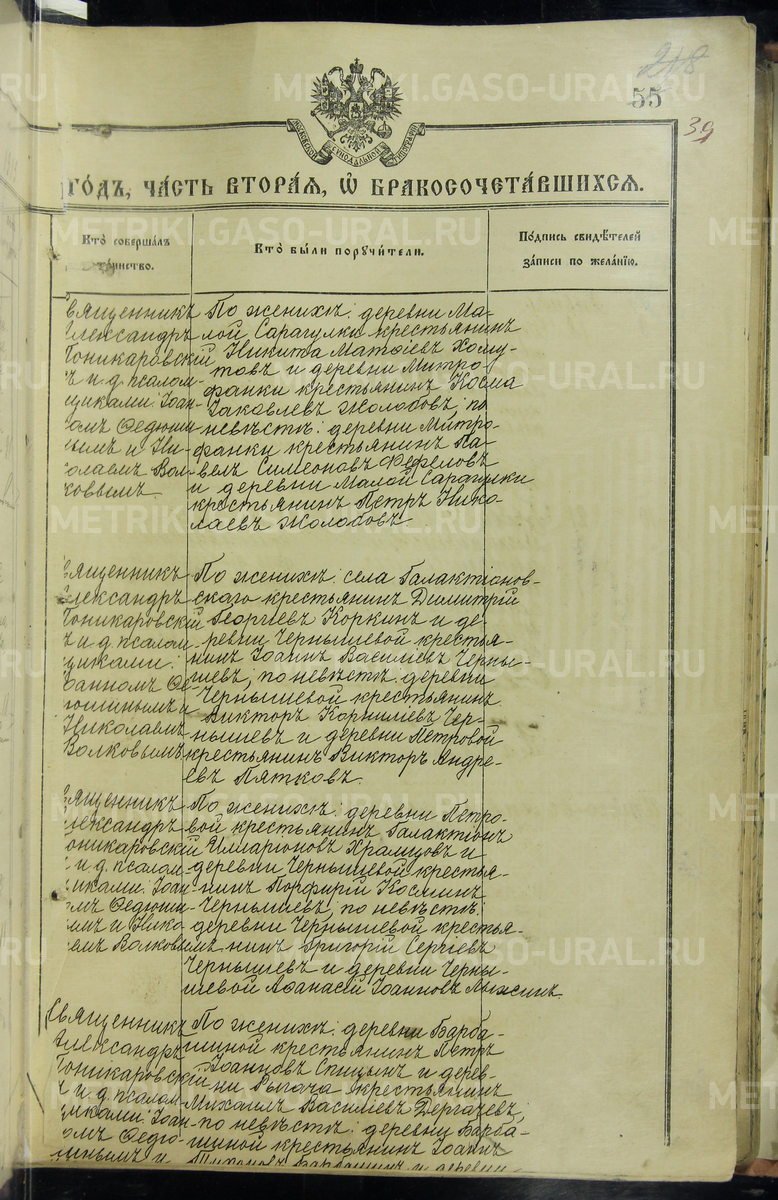 218
55
39
МОСКОВСКОЙ СѴНОДАЛЬНОЙ ТИПОГРАФІИ
ГОДЪ, ЧАСТЬ ВТОРАЯ, Ѡ БРАКОСОЧЕТАВШИХСЯ.
Кто совершалъ таинство.
Кто были поручители.
Подпись свидѣтелей записи по желанію.
вященникъ
лександръ
Поникаровскій
ъ и. д. псалом-
щиками: Іоан-
омъ Федюши
нымъ и Ни-
олаемъ Вол-
ковымъ.
По женихѣ: деревни Ма-
лой Сарагулки крестьянинъ
Никита Матѳіевъ Хому-
товъ и деревни Митро-
фанки крестьянинъ Косма
Іаковлевъ Жолобовъ; по
невѣстѣ: деревни Митро-
фанки крестьянинъ Па-
велъ Симеоновъ Фефеловъ
и деревни Малой Сарагулки
крестьянинъ Петръ Нико-
лаевъ Жолобовъ.
вященникъ
лександръ
Поникаровскій
ъ и. д. псалом
щиками:
оанномъ Фе
дюшинымъ и
Николаемъ
Волковымъ
По женихѣ: села Галактіонов-
скаго крестьянинъ Димитрій
Георгіевъ Коркинъ и де-
ревни Чернышевой крестья-
нинъ Іоаннъ Василіевъ Черны-
шевъ; по невѣстѣ: деревни
Чернышевой крестьянинъ
Викторъ Корниліевъ Чер-
нышевъ и деревни Петровой
крестьянинъ Викторъ Андре-
евъ Пятковъ.
вященникъ
лександръ
оникаровскій
и. д. псалом
щиками: Іоан
омъ Федюши-
ымъ и Нико-
аемъ Волковымъ
По женихѣ: деревни Петро-
вой крестьянинъ Галактіонъ
Иларіоновъ Храмцовъ и
деревни Чернышевой крестья-
нинъ Порфирій Косминъ
Чернышевъ; по невѣстѣ:
деревни Чернышевой крестья-
нинъ Григорій Сергіевъ
Чернышевъ и деревни Черны-
шевой Аѳанасій Іоанновъ Лыжинъ.
Священникъ
Александръ
Поникаровскій
и. д. псалом-
щиками: Іоан-
омъ Федю-
шинымъ и
По женихѣ: деревни Барба-
шиной крестьянинъ Петръ
Іоанновъ Спицынъ и дерев-
ни Рыгача крестьянинъ
Михаилъ Василіевъ Дергачевъ;
по невѣстѣ: деревни Барба-
шиной крестьянинъ Іоаннъ
Барбашинъ и деревни
METRIKI.GASO-URAL.RU
METRIKI.GASO-URAL.RU
METRIKI.GASO-URAL.RU
METRIKI.GASO-URAL.RU
METRIKI.GASO-URAL.RU
METRIKI.GASO-URAL.RU
METRIKI.GASO-URAL.RU
METRIKI.GASO-URAL.RU